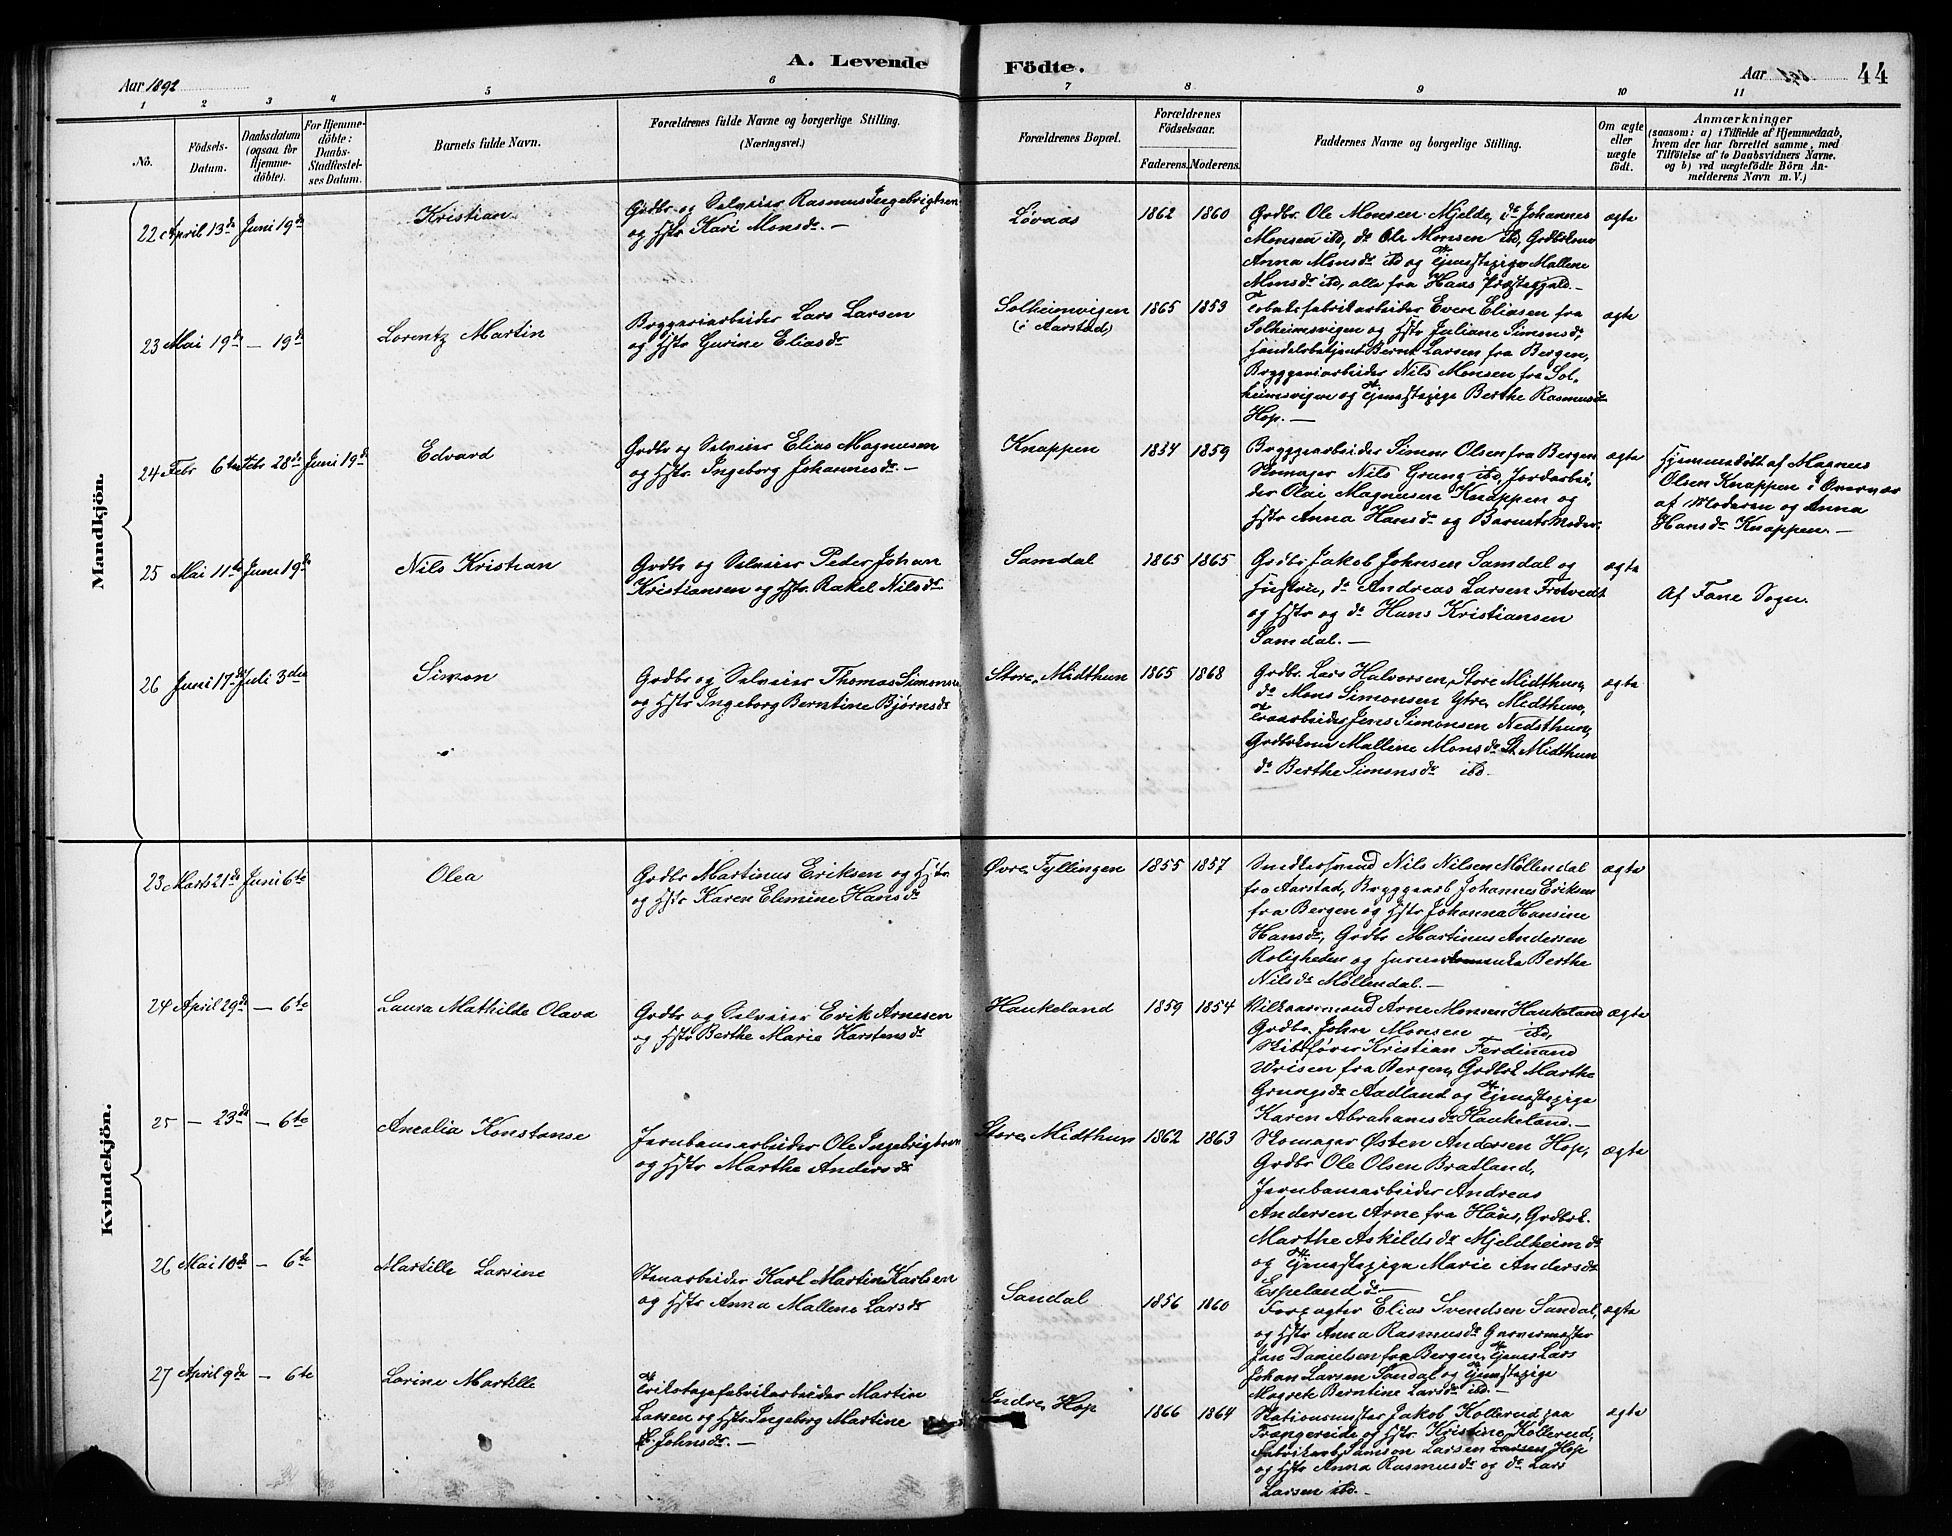 A. Levende Födte.
Aar 1892
Aar 44
1 2 3 4 5 6 7 8 9 10 11
No.
Födsels-Datum.
Daabsdatum (ogsaa for Hjemme-döbte).
For Hjemme-döbte: Daabs-Stadfæstel-ses Datum.
Barnets fulde Navn.
Forældrenes fulde Navne og borgerlige Stilling.
(Næringsvei.)
Forældrenes Bopæl.
Forældrenes Födselsaar.
Faderens. Moderens.
Faddernes Navne og borgerlige Stilling.
Om ægte eller uægte födt.
Anmærkninger
(saasom: a) i Tilfælde af Hjemmedaab,
hvem der har forrettet samme, med
Tilföielse af to Daabsvidners Navne.
og b) ved uægtefödte Börn An-
melderens Navn m. V.)
Mandkjön.
22 April 13de Juni 19de
Kristian
Grdbr. og Selveier Rasmus Ingebrigtsen
og Hstr Kari Monsdr. –
Løvaas
1862 1860
Grdbr. Ole Monsen Mjelde, do Johannes
Monsen ibd, do Ole Monsen ibd, Grdbrkone
Anna Monsdr ibd og Tjenestepige Mallene
Monsdr ibd, alle fra Haus Præstegjæld. –
ægte
23 Mai 19de – 19de
Lorentz Martin
Bryggeriarbeider Lars Larsen
og Hstr Gurine Eliasdr
Solheimsvigen
(i Aarstad)
1865 1853
Tobaksfabrikarbeider Evere Eliasen fra
Solheimsvigen og Hstr Juliane Simonsdr,
Handelsbetjent Bernt Larsen fra Bergen,
Bryggeriarbeider Nils Monsen fra Sol-
heimsvigen og Tjenestepige Berthe Rasmusdr
Hop. –
ægte
24 Febr 6te Febr 28de Juni 19de
Edvard
Grdbr og Selveier Elias Magnusen
og Hstr Ingeborg Johannesdr –
Knappen
1834 1859
Bryggearbeider Simon Olsen fra Bergen
Skomager Nils Grung ibd, Jordarbei-
der Olai Magnusen Knappen og
Hstr Anna Hansdr og Barnets Moder.
ægte
Hjemmedöbt af Magnus
Olsen Knappen i Overvær
af Moderen og Anna
Hansdr Knappen. –
25 Mai 11te Juni 19de
Nils Kristian
Grdbr og Selveier Peder Johan
Kristiansen og Hstr. Rakel Nilsdr
Samdal
1865 1865
Grdbr. Jakob Johnsen Samdal og
Hustru, do Andreas Larsen Frotvedt
og Hstr og do Hans Kristiansen
Samdal. –
ægte
Af Fane Sogn.
26 Juni 17de Juli 3die
Simon
Grdbr og Selveier Thomas Simonsen
og Hstr Ingeborg Berntine Bjørnsdr
Store Midthun
1865 1868
Grdbr. Lars Halvorsen, Store Midthun,
do Mons Simonsen Ytre Midthun,
Træarbeider Jens Simonsen Nedsthun,
Grdbrkone Mallene Monsdr St. Midthun
do Berthe Simonsdr ibd.
ægte
Kvindekjön.
23 Marts 21de Juni 6te
Olea
Grdbr Martinus Eriksen og Hstr.
og Hstr Karen Elemine Hansdr
Øvre Fyllingen
1855 1857
Snedkersvend Nils Nilsen Möllendal
fra Aarstad, Bryggearb Johannes Eriksen
fra Bergen og Hstr Johanna Hansine
Hansdr, Grdbr Martinus Andersen
Roligheden og Berthe
Nilsdr Möllendal. –
ægte
24 April 29de – 6te
Laura Mathilde Olava
Grdbr og Selveier Erik Arnesen
og Hstr Berthe Marie Karstensdr
Haukeland
1859 1854
Vilkaarsmand Arne Monsen Haukeland
Grdbr. John Monsen ibd,
Skibsfører Kristian Ferdinand
Wrisen fra Bergen, Grdbrk Marthe
Grungsdr Aadland og Tjenestepige
Karen Abrahamsdr Haukeland. –
ægte
25 – 23de – 6te
Amalia Konstanse
Jernbanearbeider Ole Ingebrigtsen
og Hstr Marthe Andersdr
Store Midthun
1862 1863
Skomager Østen Andersen Hop,
Grdbr Ole Olsen Bratland,
Jernbanearbeider Andreas
Andersen Arne fra Haus, Grdbrk.
Marthe Askildsdr Mjeldheim do
og Tjenestepige Marie Andersdr
Espeland do –
ægte
26 Mai 10de – 6te
Martille Larsine
Stenarbeider Karl Martin Karlsen
og Hstr Anna Mallene Larsdr
Sandal
1856 1860
Forpagter Elias Svendsen Sandal,
og Hstr Anna Rasmusdr Garvermester
Jan Danielsen fra Bergen, Tjener Lars
Johan Larsen Sandal og Tjenestepige
Magrete Berntine Larsdr ibd. –
ægte
27 April 9de – 6te
Lorine Martille
Trikotagefabrikarbeider Martin
Larsen og Hstr Ingeborg Martine
Johnsdr –
Indre Hop
1866 1864
Stationsmester Jakob Kollerud paa
Trængereide og Hstr Kristine Kollerud,
Fabrikarb. Samson Larsen Hop
og Hstr Anna Rasmusdr og do Lars
Larsen ibd. –
ægte